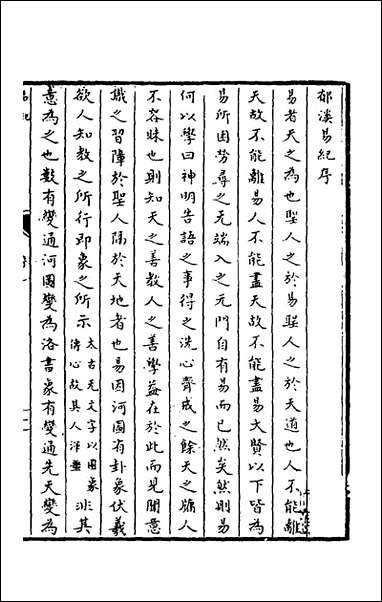 郁溪易紀序
易者天之為也聖人之於易聖人之於天道也人不能離
天故不能離易人不能盡天故不能盡易大賢以下皆為
易所困勞尋之无端入之无門自有易而已然矣然則易
何以學曰神明告語之事得之洗心齊戒之餘天之牖人
不容昧也則知天之善教人之善學益在於此而見聞意
識之習障於聖人隔於天地者也易因河圖有卦象伏羲
欲人知教之所行即象之所示太古无文字以圖象
傳心故其人淳龐非其
意為之也數有變通河圖變為洛書象有變通先天變為